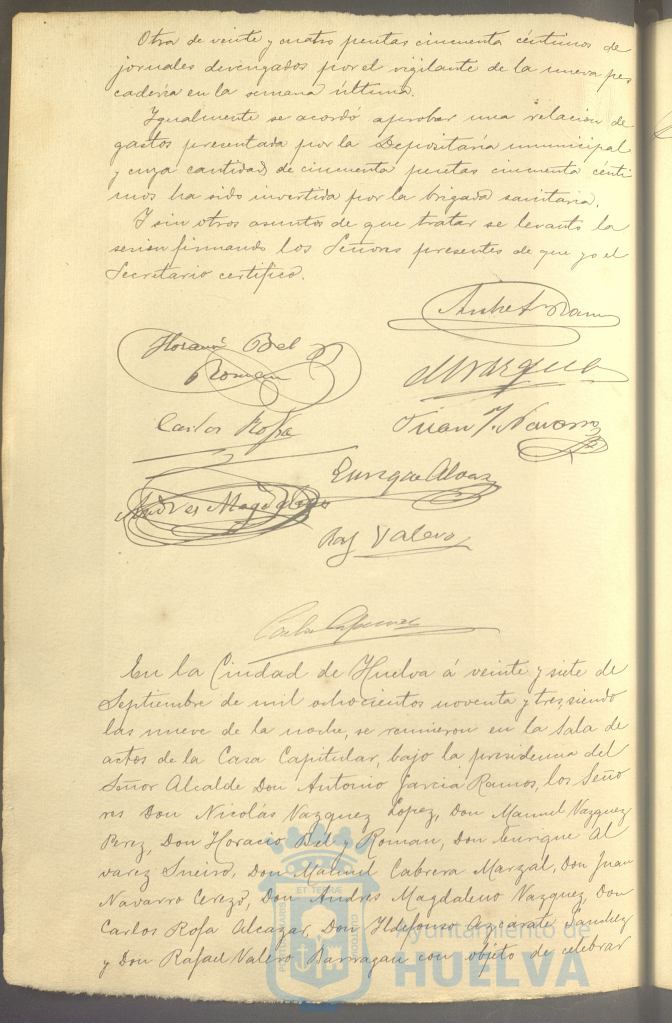 Otra de veinte y cuatro pesetas cincuenta céntimos de
jornales devengados por el vigilante de la nueva pes
caderia en la semana última.
Igualmente se acordó aprobar una relación de
gastos presentada por la Depositaría municipal
y cuya cantidad de cincuenta pesetas cincuenta cénti
mos ha sido invertida por la brigada sanitaria.
Y sin otros asuntos de que tratar se levantó la
sesion firmando los Señores presentes de que yo el
Secretario certifico.
Horacio Bel
y Roman
Carlos Rofa
Juan J. Navarro
Enrique Alvarez
Andres Magdaleno
Raf Valero
En la Ciudad de Huelva á veinte y siete de
Septiembre de mil ochocientos noventa y tres, siendo
las nueve de la noche, se reunieron en la Sala de
actos de la Casa Capitular, bajo la presidencia del
Señor Alcalde Don Antonio Garcia Ramos, los Seño
res Don Nicolás Vazquez Lopez, Don Manuel Vazquez
Perez, Don Horacio Bel y Roman, Don Enrique Al
varez Sneiro, Don Manuel Cabrera Marzal, Don Juan
Navarro Cerezo, Don Andres Magdaleno Vazquez, Don
Carlos Rofa Alcazar, Don Ildefonso Azcárate Sandez
y Don Rafael Valero Barragan con objeto de celebrar
PORTUS MARIS ET TERRÆ CUSTODIA
Ayuntamiento de
HUELVA